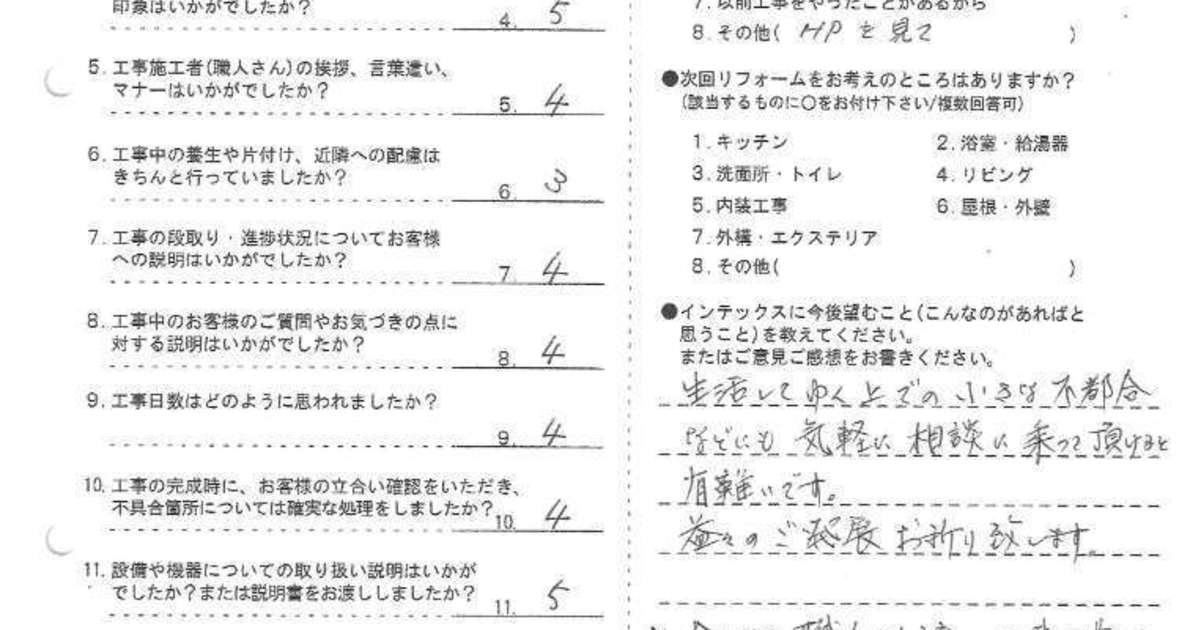 印象はいかがでしたか?
4. 5
5. 工事施工者(職人さん)の挨拶、言葉遣い、
マナーはいかがでしたか?
5. 4
6. 工事中の養生や片付け、近隣への配慮は
きちんと行っていましたか?
6. 3
7. 工事の段取り・進捗状況についてお客様
への説明はいかがでしたか?
7. 4
8. 工事中のお客様のご質問やお気づきの点に
対する説明はいかがでしたか?
8. 4
9. 工事日数はどのように思われましたか?
9. 4
10. 工事の完成時に、お客様の立合い確認をいただき、
不具合箇所については確実な処理をしましたか?
10. 4
11. 設備や機器についての取り扱い説明はいかが
でしたか?または説明書をお渡ししましたか?
11. 5
7. 以前工事をやったことがあるから
8. その他( HPを見て )
●次回リフォームをお考えのところはありますか?
(該当するものに○をお付け下さい/複数回答可)
1. キッチン 2. 浴室・給湯器
3. 洗面所・トイレ 4. リビング
5. 内装工事 6. 屋根・外壁
7. 外構・エクステリア
8. その他( )
●インテックスに今後望むこと(こんなのがあればと
思うこと)を教えてください。
またはご意見ご感想をお書きください。
生活してゆく上での小さな不都合
などにも気軽に相談に乗って頂けると
有難いです。
益々のご発展お祈り致します。